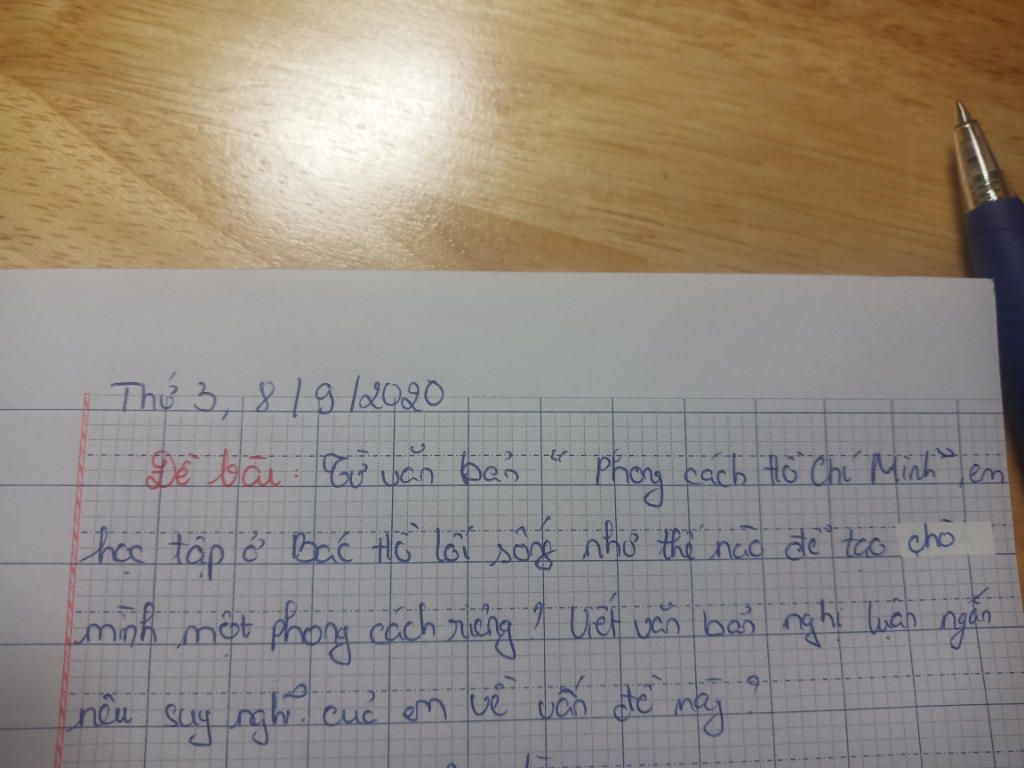 Thứ 3, 8/9/2020
Đề bài: Từ văn bản "Phong cách Hồ Chí Minh" em
học tập ở Bác Hồ lối sống như thế nào để tạo cho
mình một phong cách riêng? Viết văn bản nghị luận ngắn
nêu suy nghĩ của em về vấn đề này?